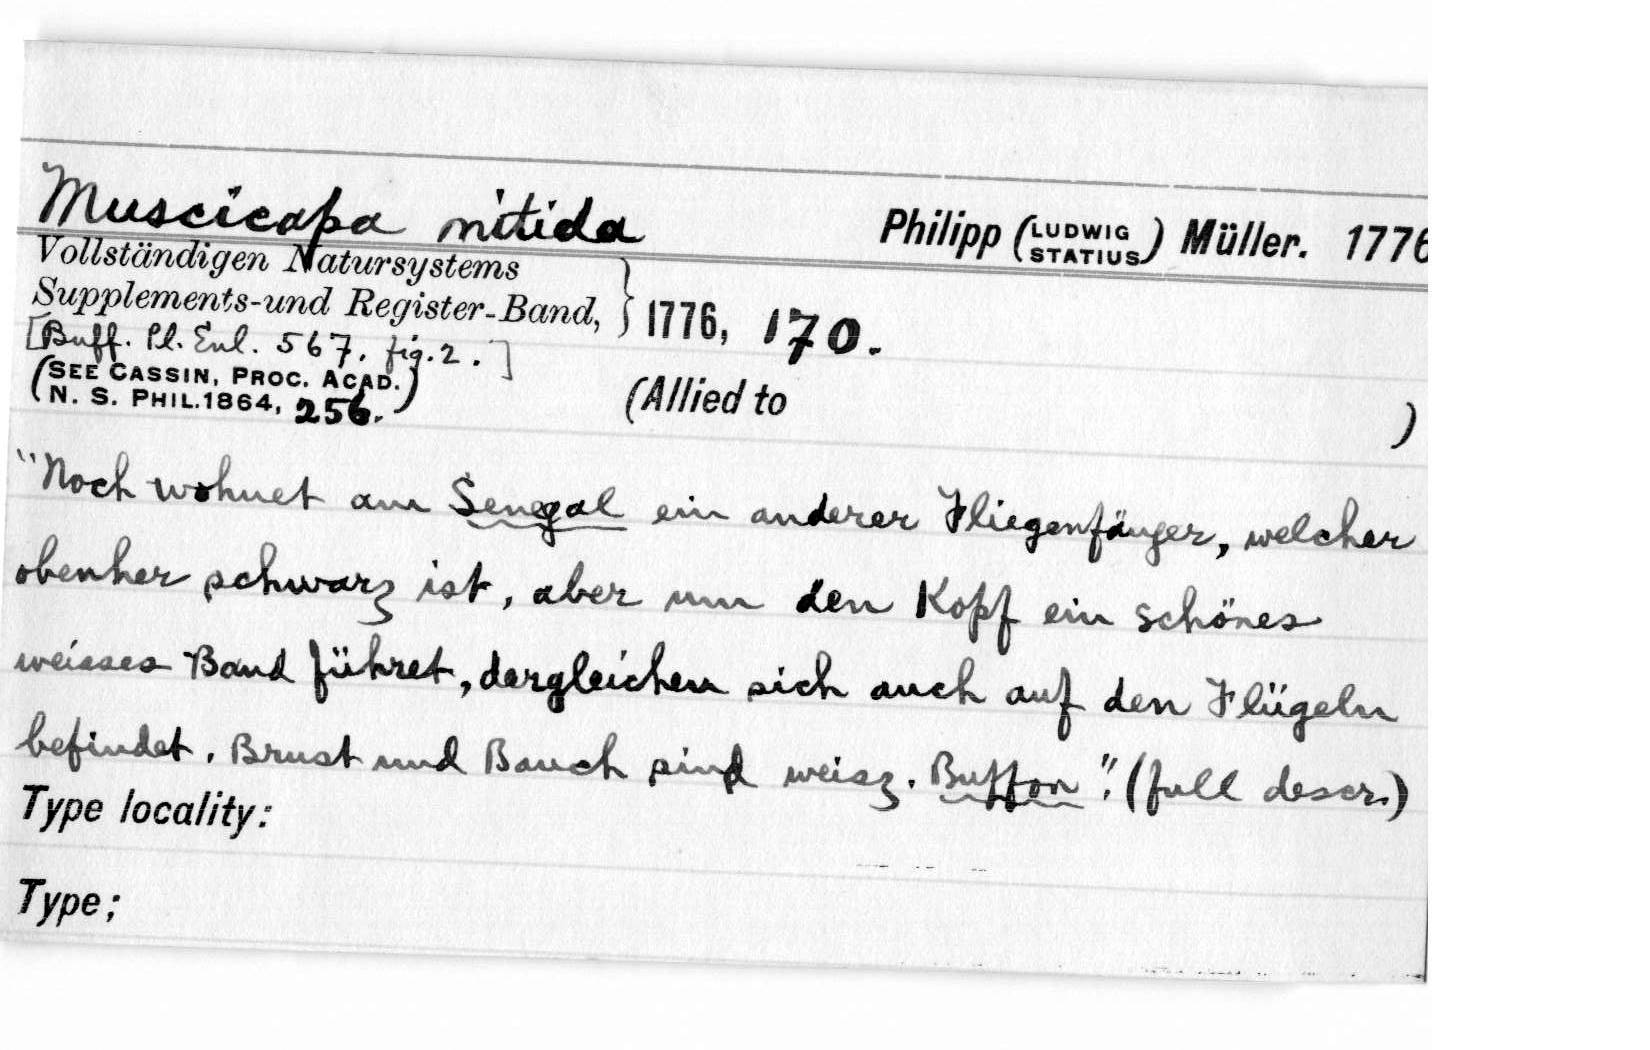 Muscicapa nitida Philipp (LUDWIG STATIUS) Müller. 1776
Vollständigen Natursystems
Supplements-und Register-Band, } 1776, 170.
[Buff. Pl. Enl. 567, fig. 2.]
(SEE CASSIN, PROC. ACAD.
N. S. PHIL. 1864, 256.) (Allied to )
"Noch wohnet am Senegal ein anderer Fliegenfänger, welcher
obenher schwarz ist, aber um den Kopf ein schönes
weisses Band führet, dergleichen sich auch auf den Flügeln
befindet. Brust und Bauch sind weisz. Buffon". (full descr.)
Type locality:
Type;